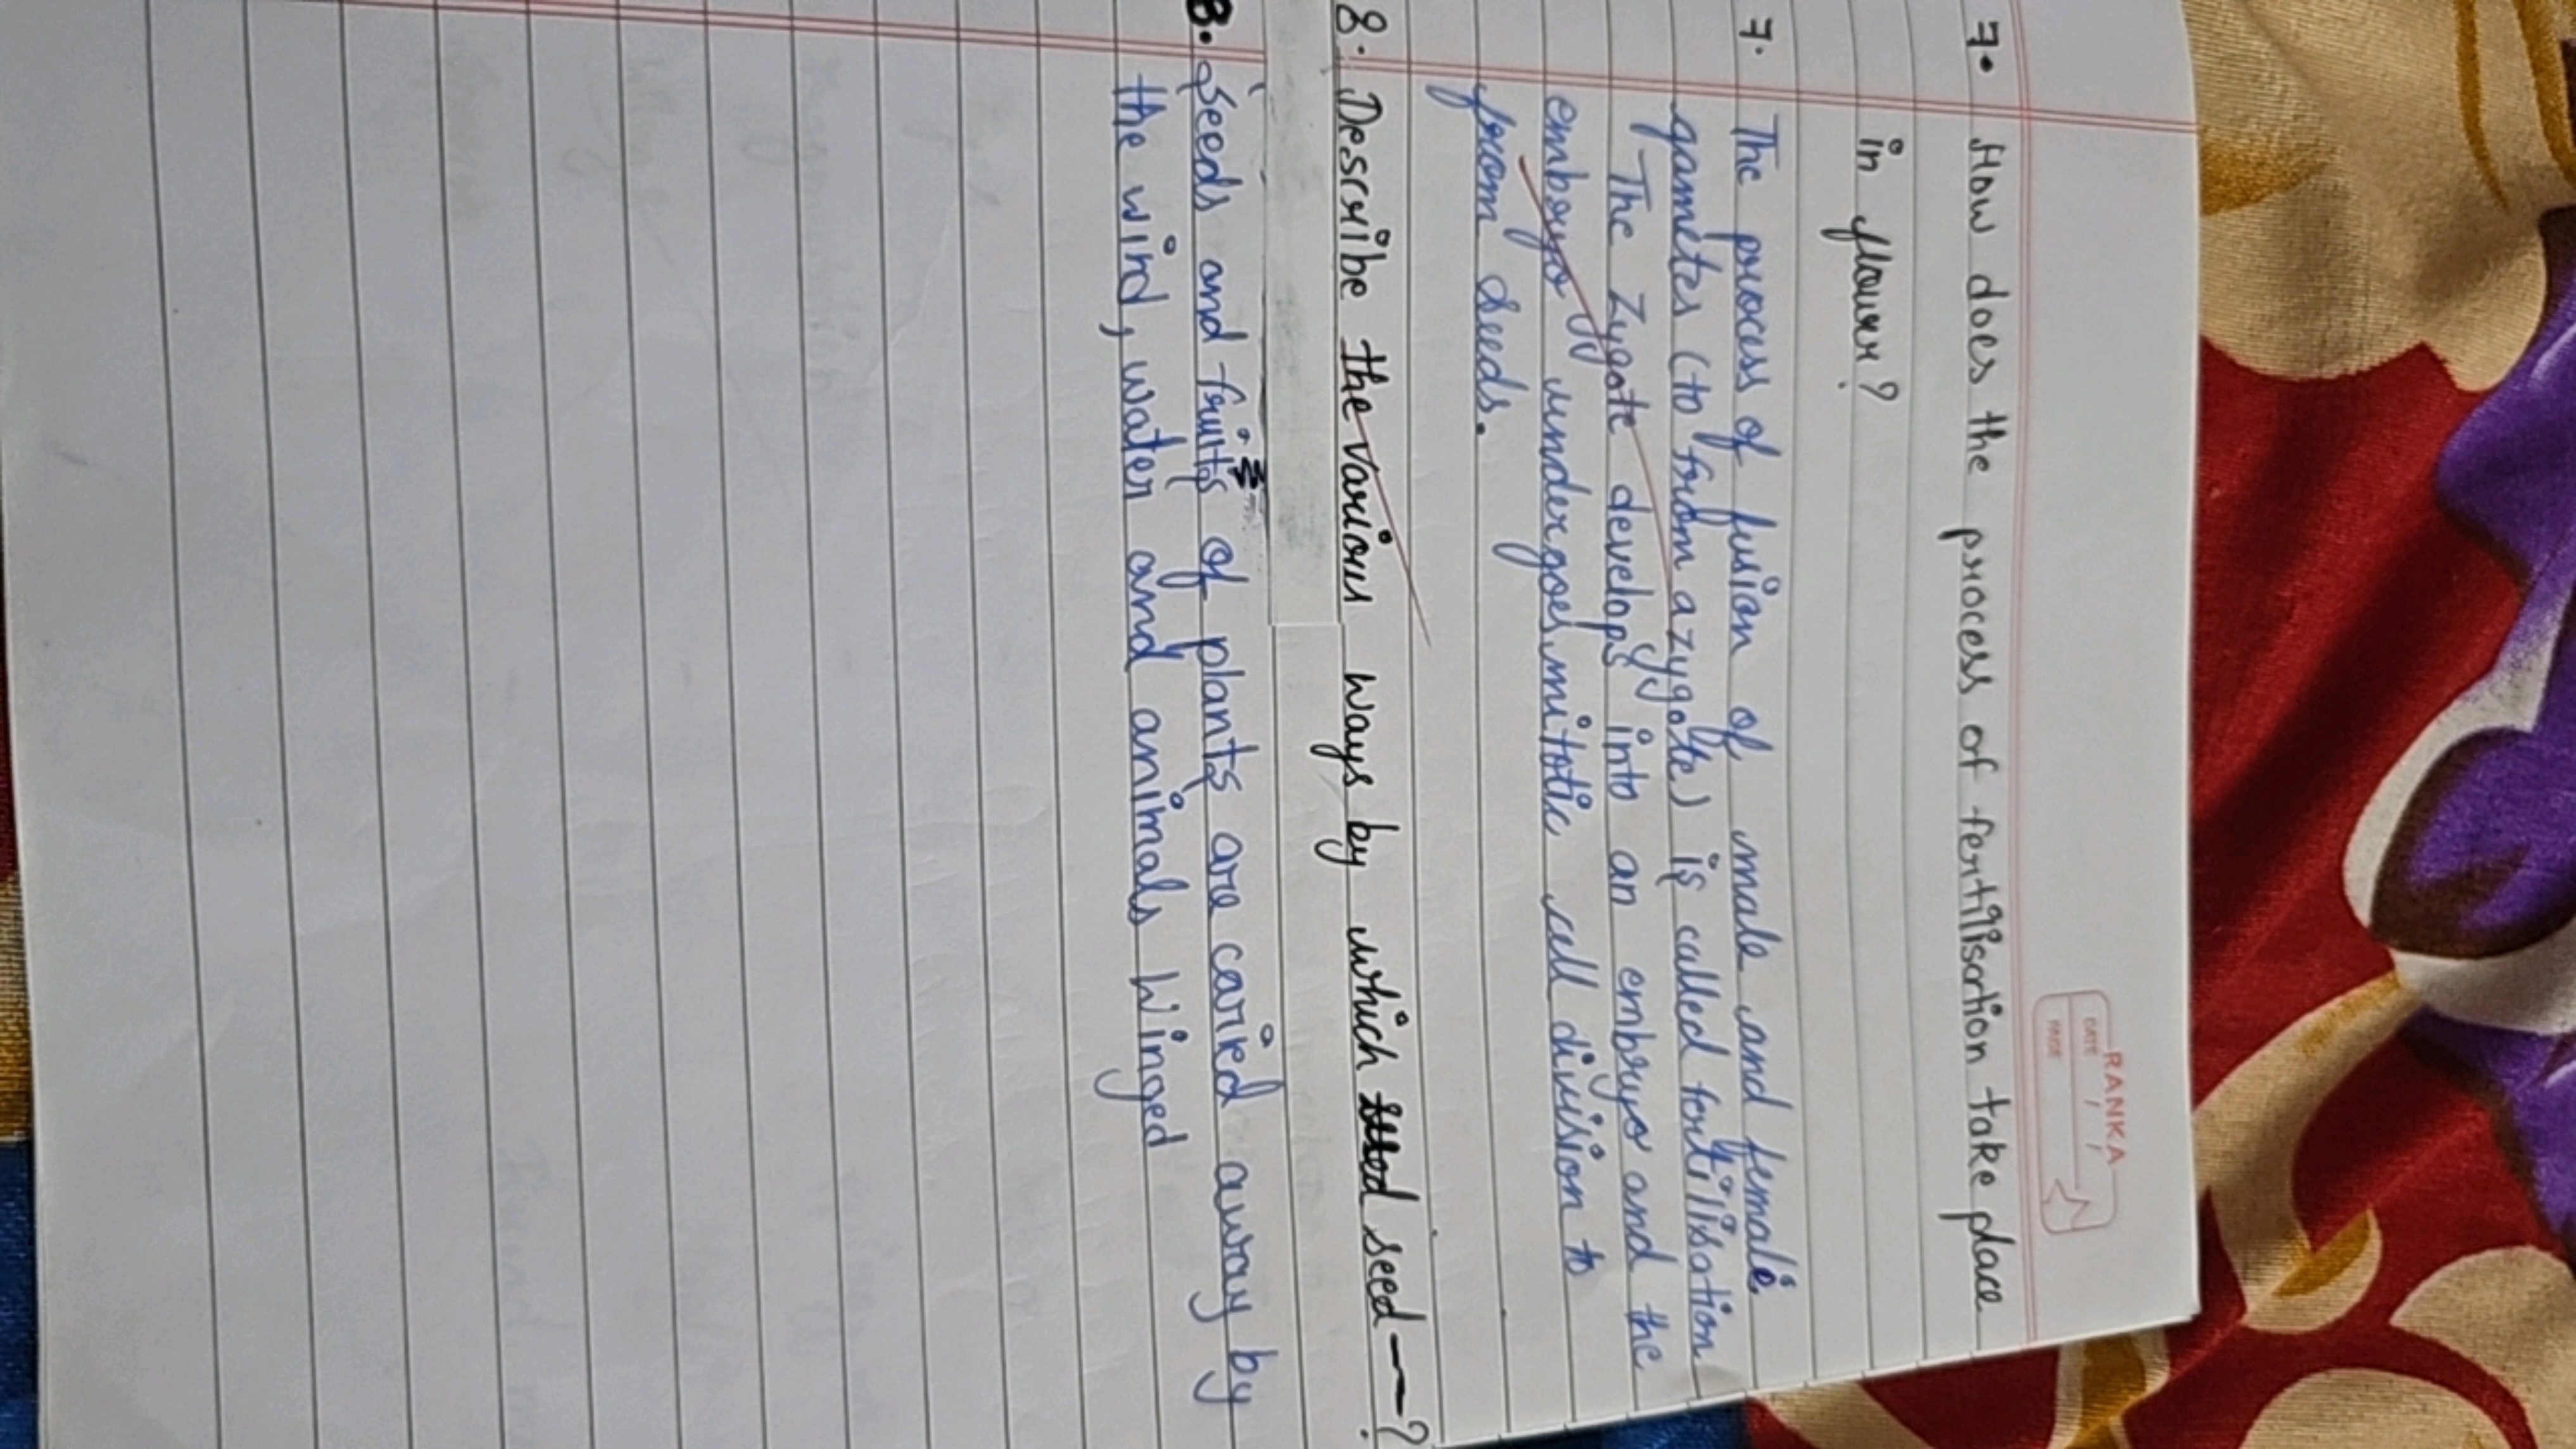 RANKA
DATE / /
PAGE
7. How does the process of fertilisation take place
in flower?
7. The process of fusion of male and female
gametes (to from a zygote) is called fertilisation
The Zygote develops into an embryo and the
embryo undergoes mitotic cell division to
from seeds.
8. Describe the various ways by which seed — ?
8. Seeds and fruits of plants are caried away by
the wind, water and animals Winged